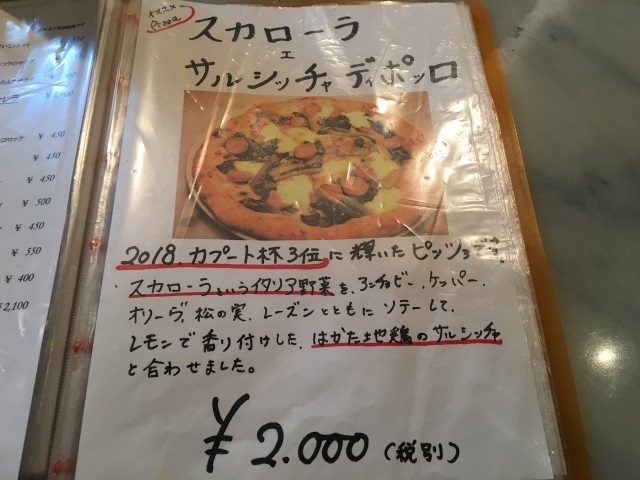 オススメ
Pizza
スカローラ
エ
サルシッチャ ディポッロ
2018.カプート杯3位に輝いたピッツァです。
スカローラというイタリア野菜を、アンチョビー、ケッパー、
オリーヴ、松の実、レーズンとともにソテーして、
レモンで香り付けした、はかた地鶏のサルシッチャ
と合わせました。
¥2.000(税別)
¥ 450
¥ 450
¥ 500
¥ 450
¥ 450
¥ 550
¥ 400
¥2,100